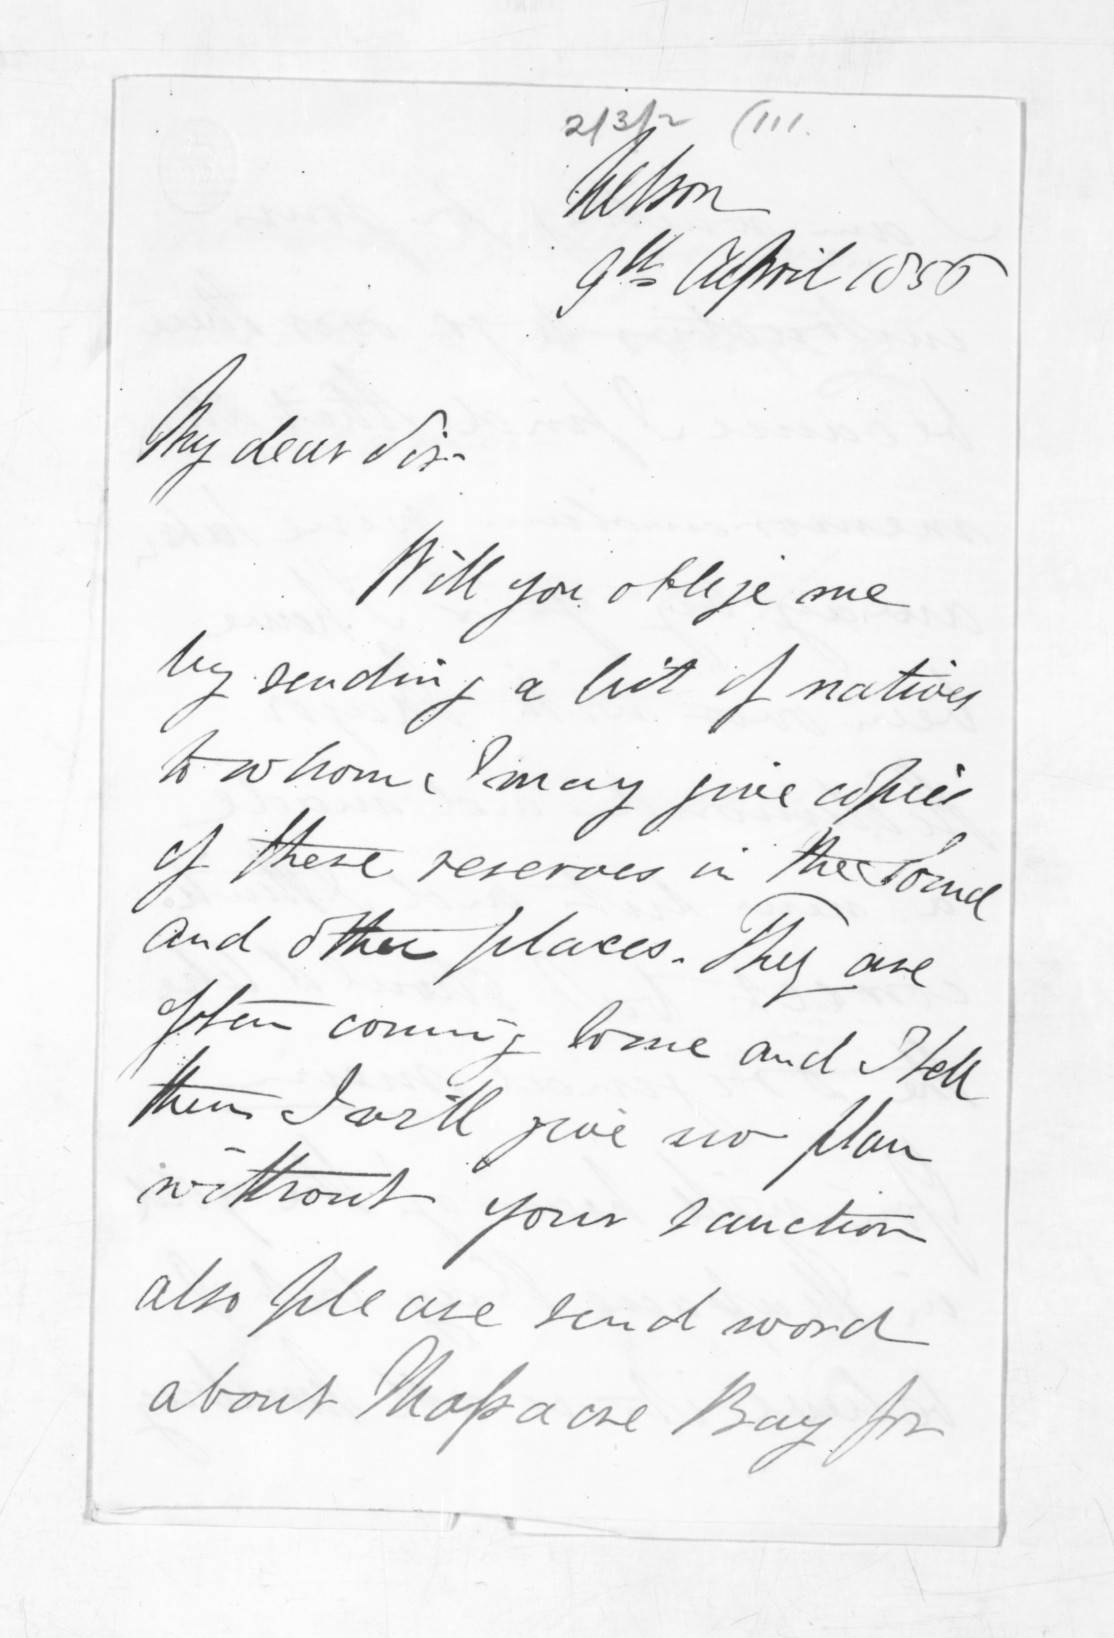 2/3/2 (111.
Nelson
9th April 1856
My dear Sir.
Will you oblige me
by sending a list of natives
to whom I may give copies
of these reserves in the Sound
and other places. They are
often coming to me and I tell
them I will give no plan
without your sanction
also please send word
about Massacre Bay for